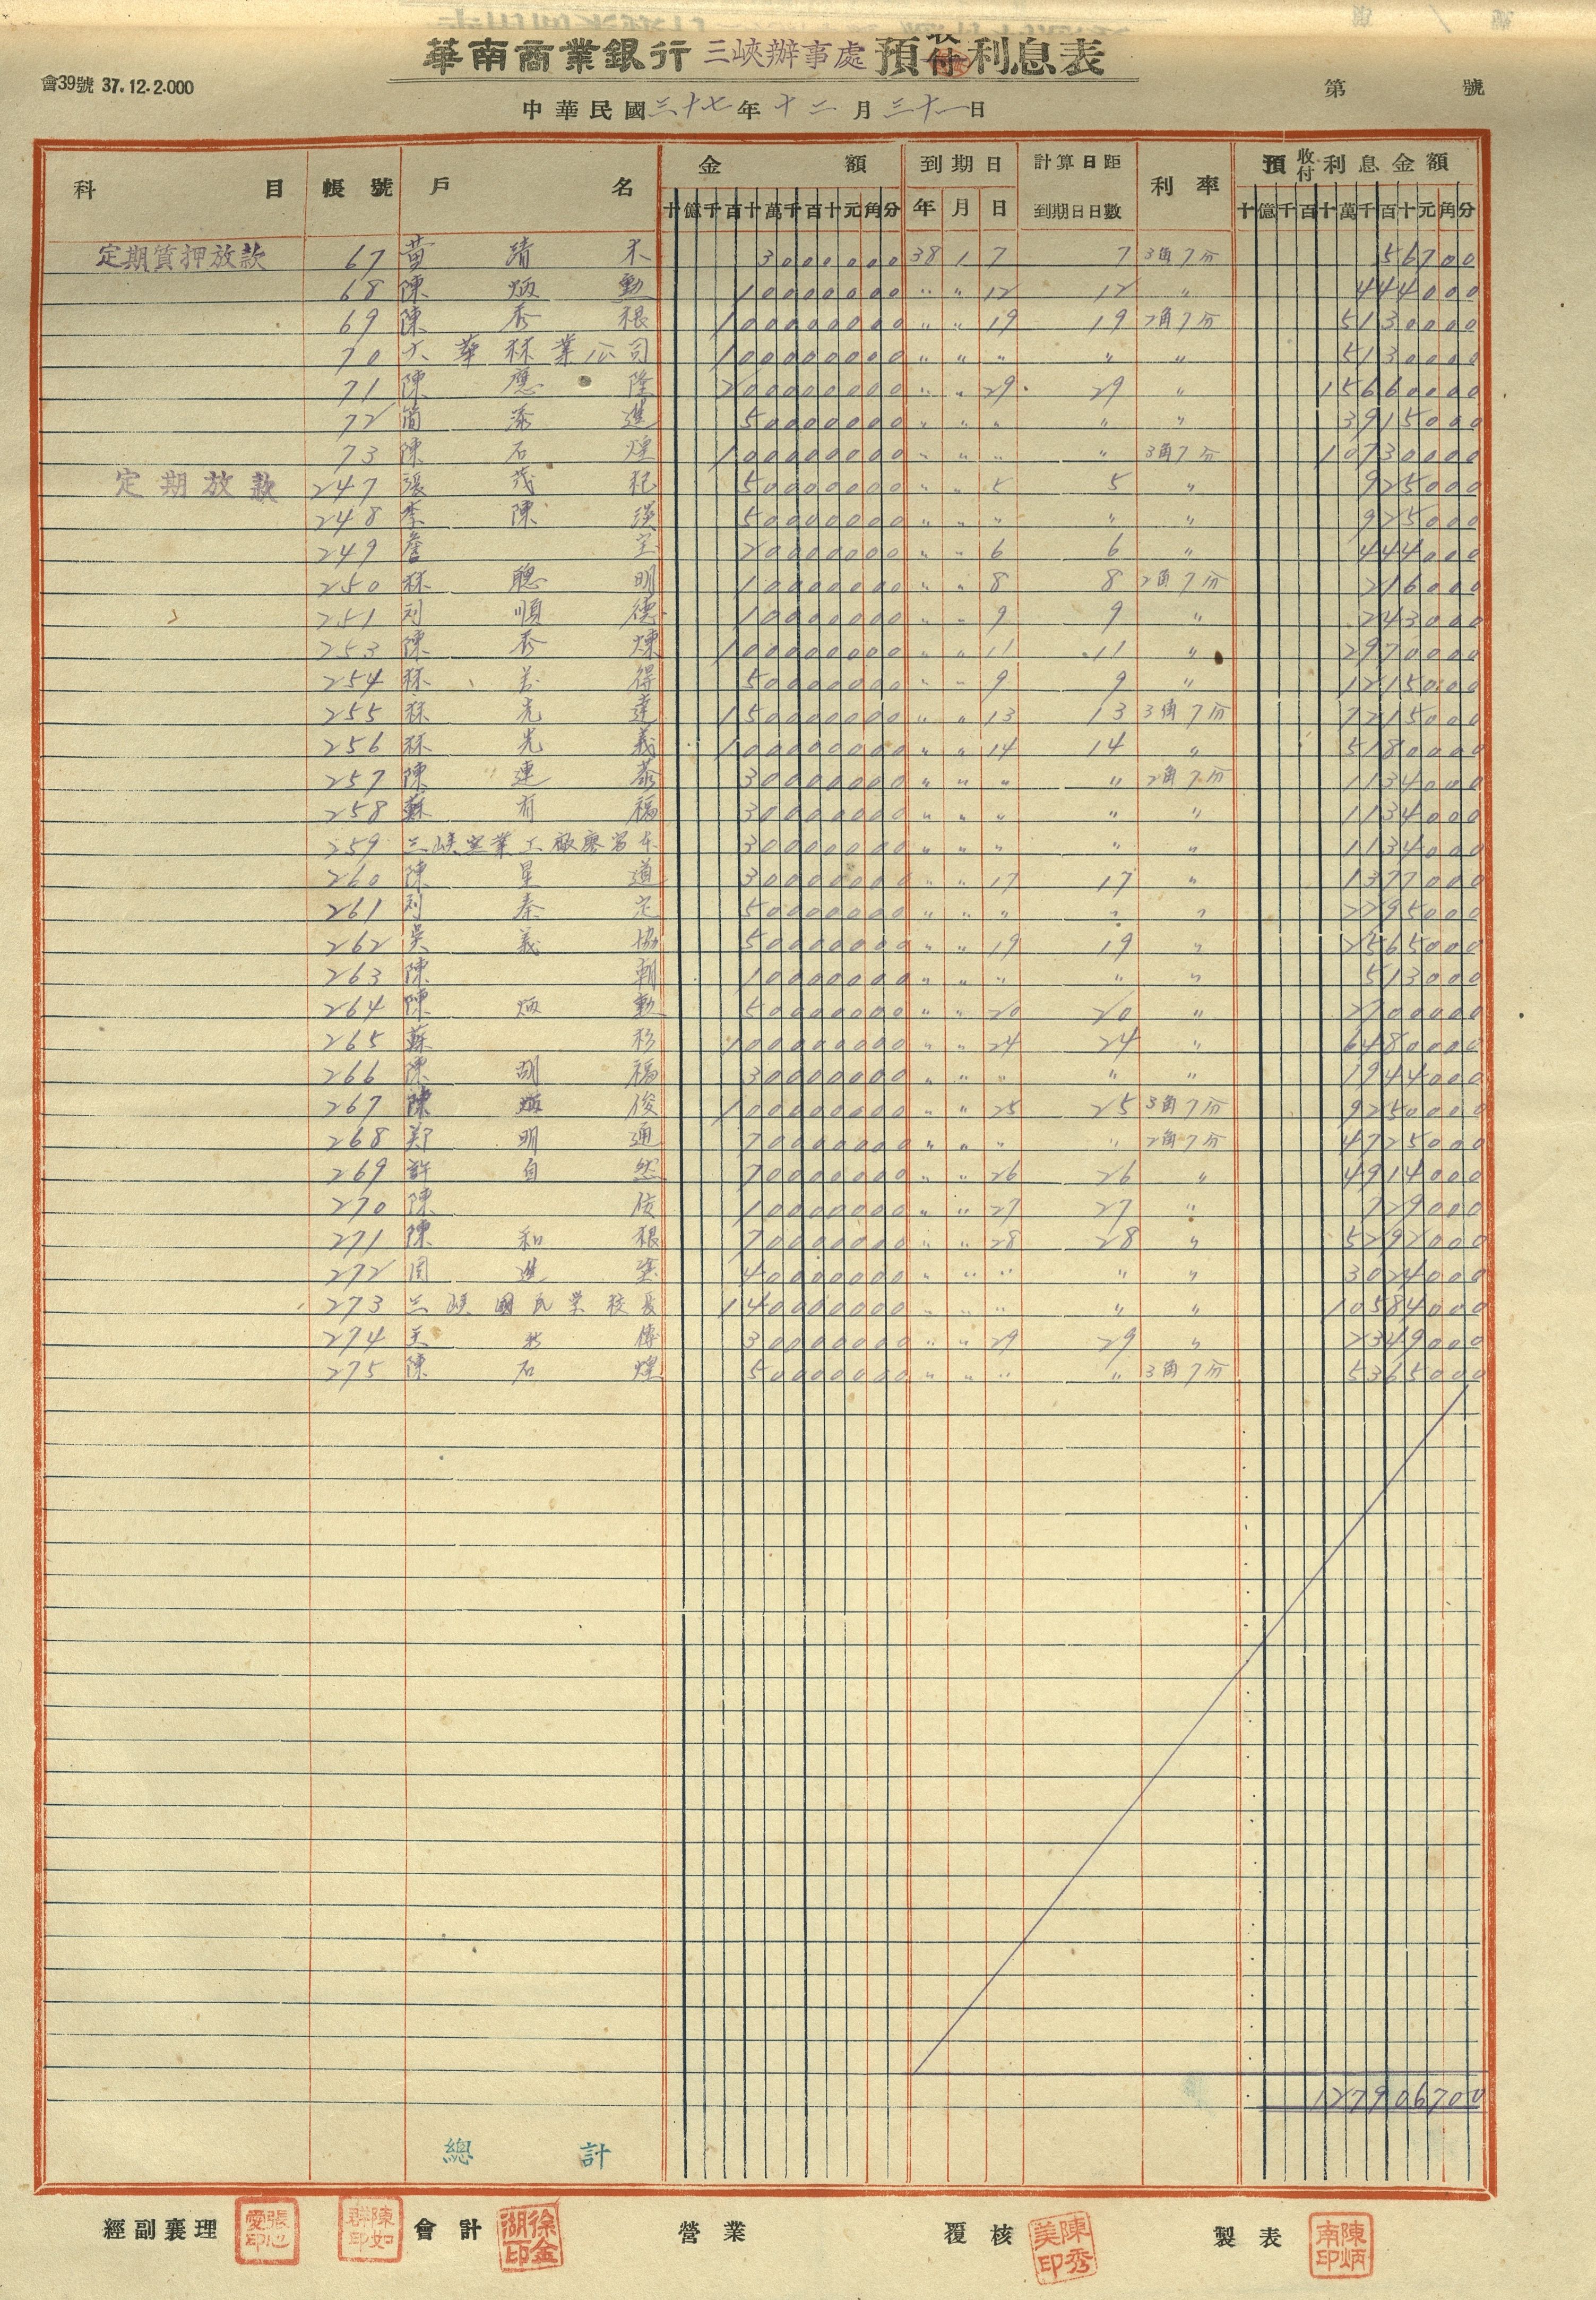 華南商業銀行 三峽辦事處 預收付利息表
會39號 37.12.2.000
第 號
中華民國三十七年十二月三十一日
科目 帳號 戶名 金額 到期日 計算日距到期日日數 利率 預收付利息金額
十億千百十萬千百十元角分 年 月 日 十億千百十萬千百十元角分
定期質押放款 67 黃靖木 3000000 38 1 7 7 3角7分 56700
68 陳炳勳 10000000 〃 〃 12 12 〃 444000
69 陳秀根 100000000 〃 〃 19 19 2角7分 5130000
70 大華林業公司 100000000 〃 〃 〃 〃 〃 5130000
71 陳應隆 200000000 〃 〃 29 29 〃 15660000
72 簡添進 50000000 〃 〃 〃 〃 〃 3915000
73 陳石煌 100000000 〃 〃 〃 〃 3角7分 10730000
定期放款 247 張茂 50000000 〃 〃 5 5 〃 925000
248 李陳 50000000 〃 〃 〃 〃 〃 925000
249 詹 20000000 〃 〃 6 6 〃 444000
250 林聰明 10000000 〃 〃 8 8 2角7分 216000
251 刘順德 10000000 〃 〃 9 9 〃 243000
253 陳秀煉 100000000 〃 〃 11 11 〃 2970000
254 林得 50000000 〃 〃 9 9 〃 1215000
255 林光達 150000000 〃 〃 13 13 3角7分 7215000
256 林光義 100000000 〃 〃 14 14 〃 5180000
257 陳連 30000000 〃 〃 〃 〃 2角7分 1134000
258 蘇有福 30000000 〃 〃 〃 〃 〃 1134000
259 三峽窯業工廠廖 30000000 〃 〃 〃 〃 〃 1134000
260 陳星道 30000000 〃 〃 17 17 〃 1377000
261 刘泰定 50000000 〃 〃 〃 〃 〃 2295000
262 吳義協 50000000 〃 〃 19 19 〃 2565000
263 陳朝 10000000 〃 〃 〃 〃 〃 513000
264 陳炳勳 50000000 〃 〃 20 20 〃 2700000
265 蘇杉 100000000 〃 〃 24 24 〃 6480000
266 陳胡福 30000000 〃 〃 〃 〃 〃 1944000
267 陳炳俊 100000000 〃 〃 25 25 3角7分 9250000
268 郑明通 70000000 〃 〃 〃 〃 2角7分 4725000
269 許自然 70000000 〃 〃 26 26 〃 4914000
270 陳俊 10000000 〃 〃 27 27 〃 729000
271 陳和根 70000000 〃 〃 28 28 〃 5292000
272 周進塗 40000000 〃 〃 〃 〃 〃 3024000
273 三峽國民學校長 140000000 〃 〃 〃 〃 〃 10584000
274 傳 30000000 〃 〃 29 29 〃 2349000
275 陳石煌 50000000 〃 〃 〃 〃 3角7分 5365000
127906700
總計
經副襄理 張心愛印 陳如群印 會計 徐金湖印 營業 覆核 陳秀美印 製表 陳炳南印